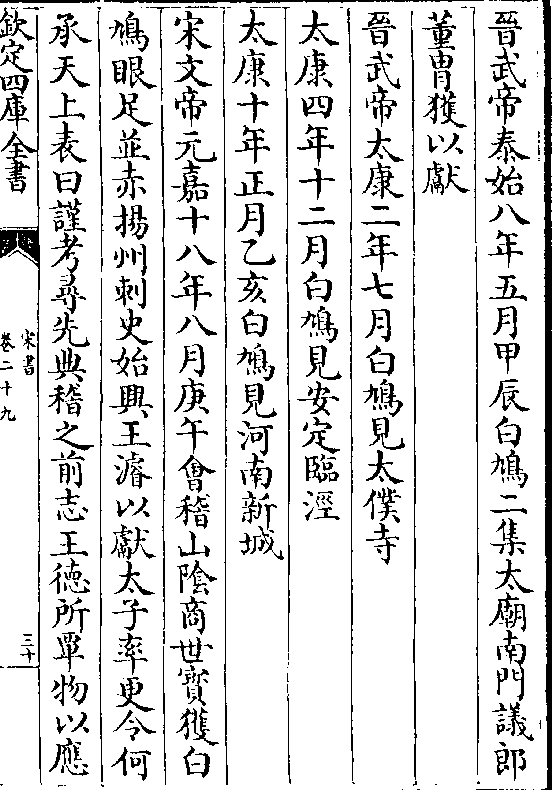 晉武帝泰始八年五月甲辰白鳩二集太廟南門議郎
董胄獲以獻
晉武帝太康二年七月白鳩見太僕寺
太康四年十二月白鳩見安定臨涇
太康十年正月乙亥白鳩見河南新城
宋文帝元嘉十八年八月庚午會稽山陰商世寳獲白
鳩眼足並赤揚州刺史始興王濬以獻太子率更令何
承天上表曰謹考尋先典稽之前志王德所覃物以應
欽定四庫全書
宋書
卷二十九
三十